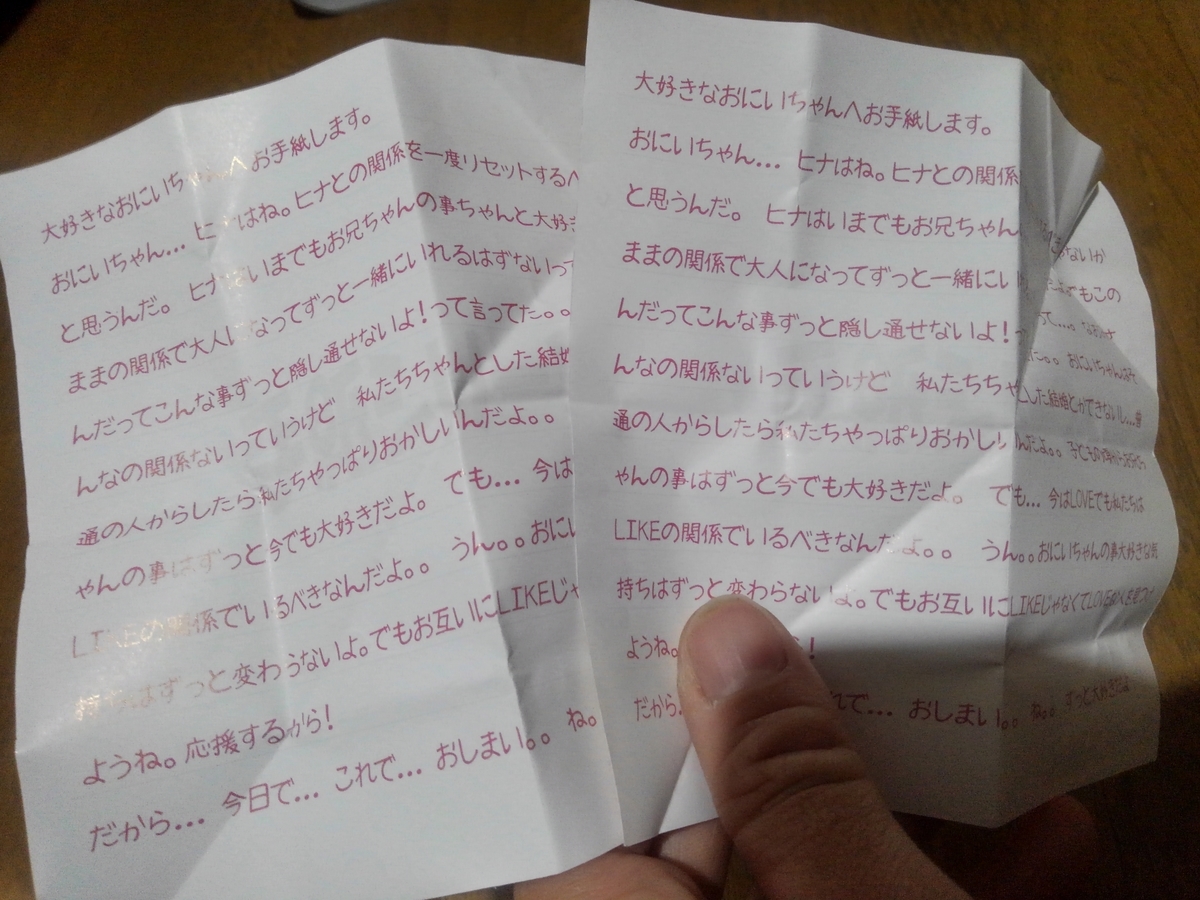 大好きなおにいちゃんへお手紙します。
おにいちゃん... ヒナはね。ヒナとの関係を一度リセットするべ
と思うんだ。 ヒナはいまでもお兄ちゃんの事ちゃんと大好き
ままの関係で大人になってずっと一緒にいれるはずないって
んだってこんな事ずっと隠し通せないよ!って言ってた。。
んなの関係ないっていうけど 私たちちゃんとした結婚
通の人からしたら私たちやっぱりおかしいんだよ。。
ゃんの事はずっと今でも大好きだよ。 でも... 今は
LIKEの関係でいるべきなんだよ。。 うん。。おにい
持ちはずっと変わらないよ。でもお互いにLIKEじゃ
ようね。応援するから!
だから... 今日で... これで... おしまい。。ね。
大好きなおにいちゃんへお手紙します。
おにいちゃん... ヒナはね。ヒナとの関係
と思うんだ。 ヒナはいまでもお兄ちゃん
ままの関係で大人になってずっと一緒にい でもこの
んだってこんな事ずっと隠し通せないよ! って...。
んなの関係ないっていうけど 私たちちゃ 。。おにいちゃんはそ
通の人からしたら私たちやっぱりおかしいんだよ。。
した結婚とかできないし...普
ゃんの事はずっと今でも大好きだよ。 でも... 今はLOVEでも私たちは
LIKEの関係でいるべきなんだよ。。 うん。。おにいちゃんの事大好きな気
持ちはずっと変わらないよ。でもお互いにLIKEじゃなくてLOVE
ようね。 !
だから. れで... おしまい。。ね。ずっと大好きだよ